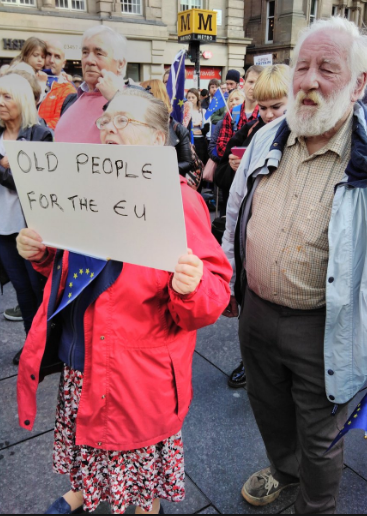 M M
METRO
OLD PEOPLE
FOR THE EU